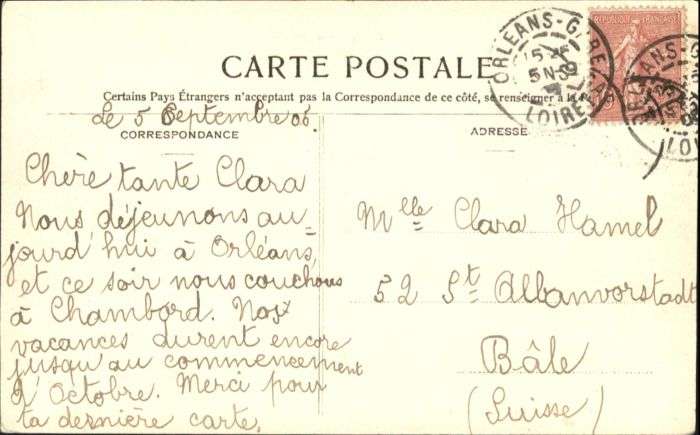 CARTE POSTALE
Certains Pays Étrangers n'acceptant pas la Correspondance de ce côté, se renseigner à la
Le 5 Septembre 06.
CORRESPONDANCE
Chère tante Clara
Nous déjeunons au=
jourd'hui à Orléans,
et ce soir nous couchons
à Chambord. Nos
vacances durent encore
jusqu'au commencement
d'Octobre. Merci pour
ta dernière carte.
ADRESSE
Mlle Clara Hamel
52 St Albanvorstadt
Bâle
(Suisse)
RÉPUBLIQUE FRANÇAISE
ORLEANS-GARE
LOIRET
ORLEANS